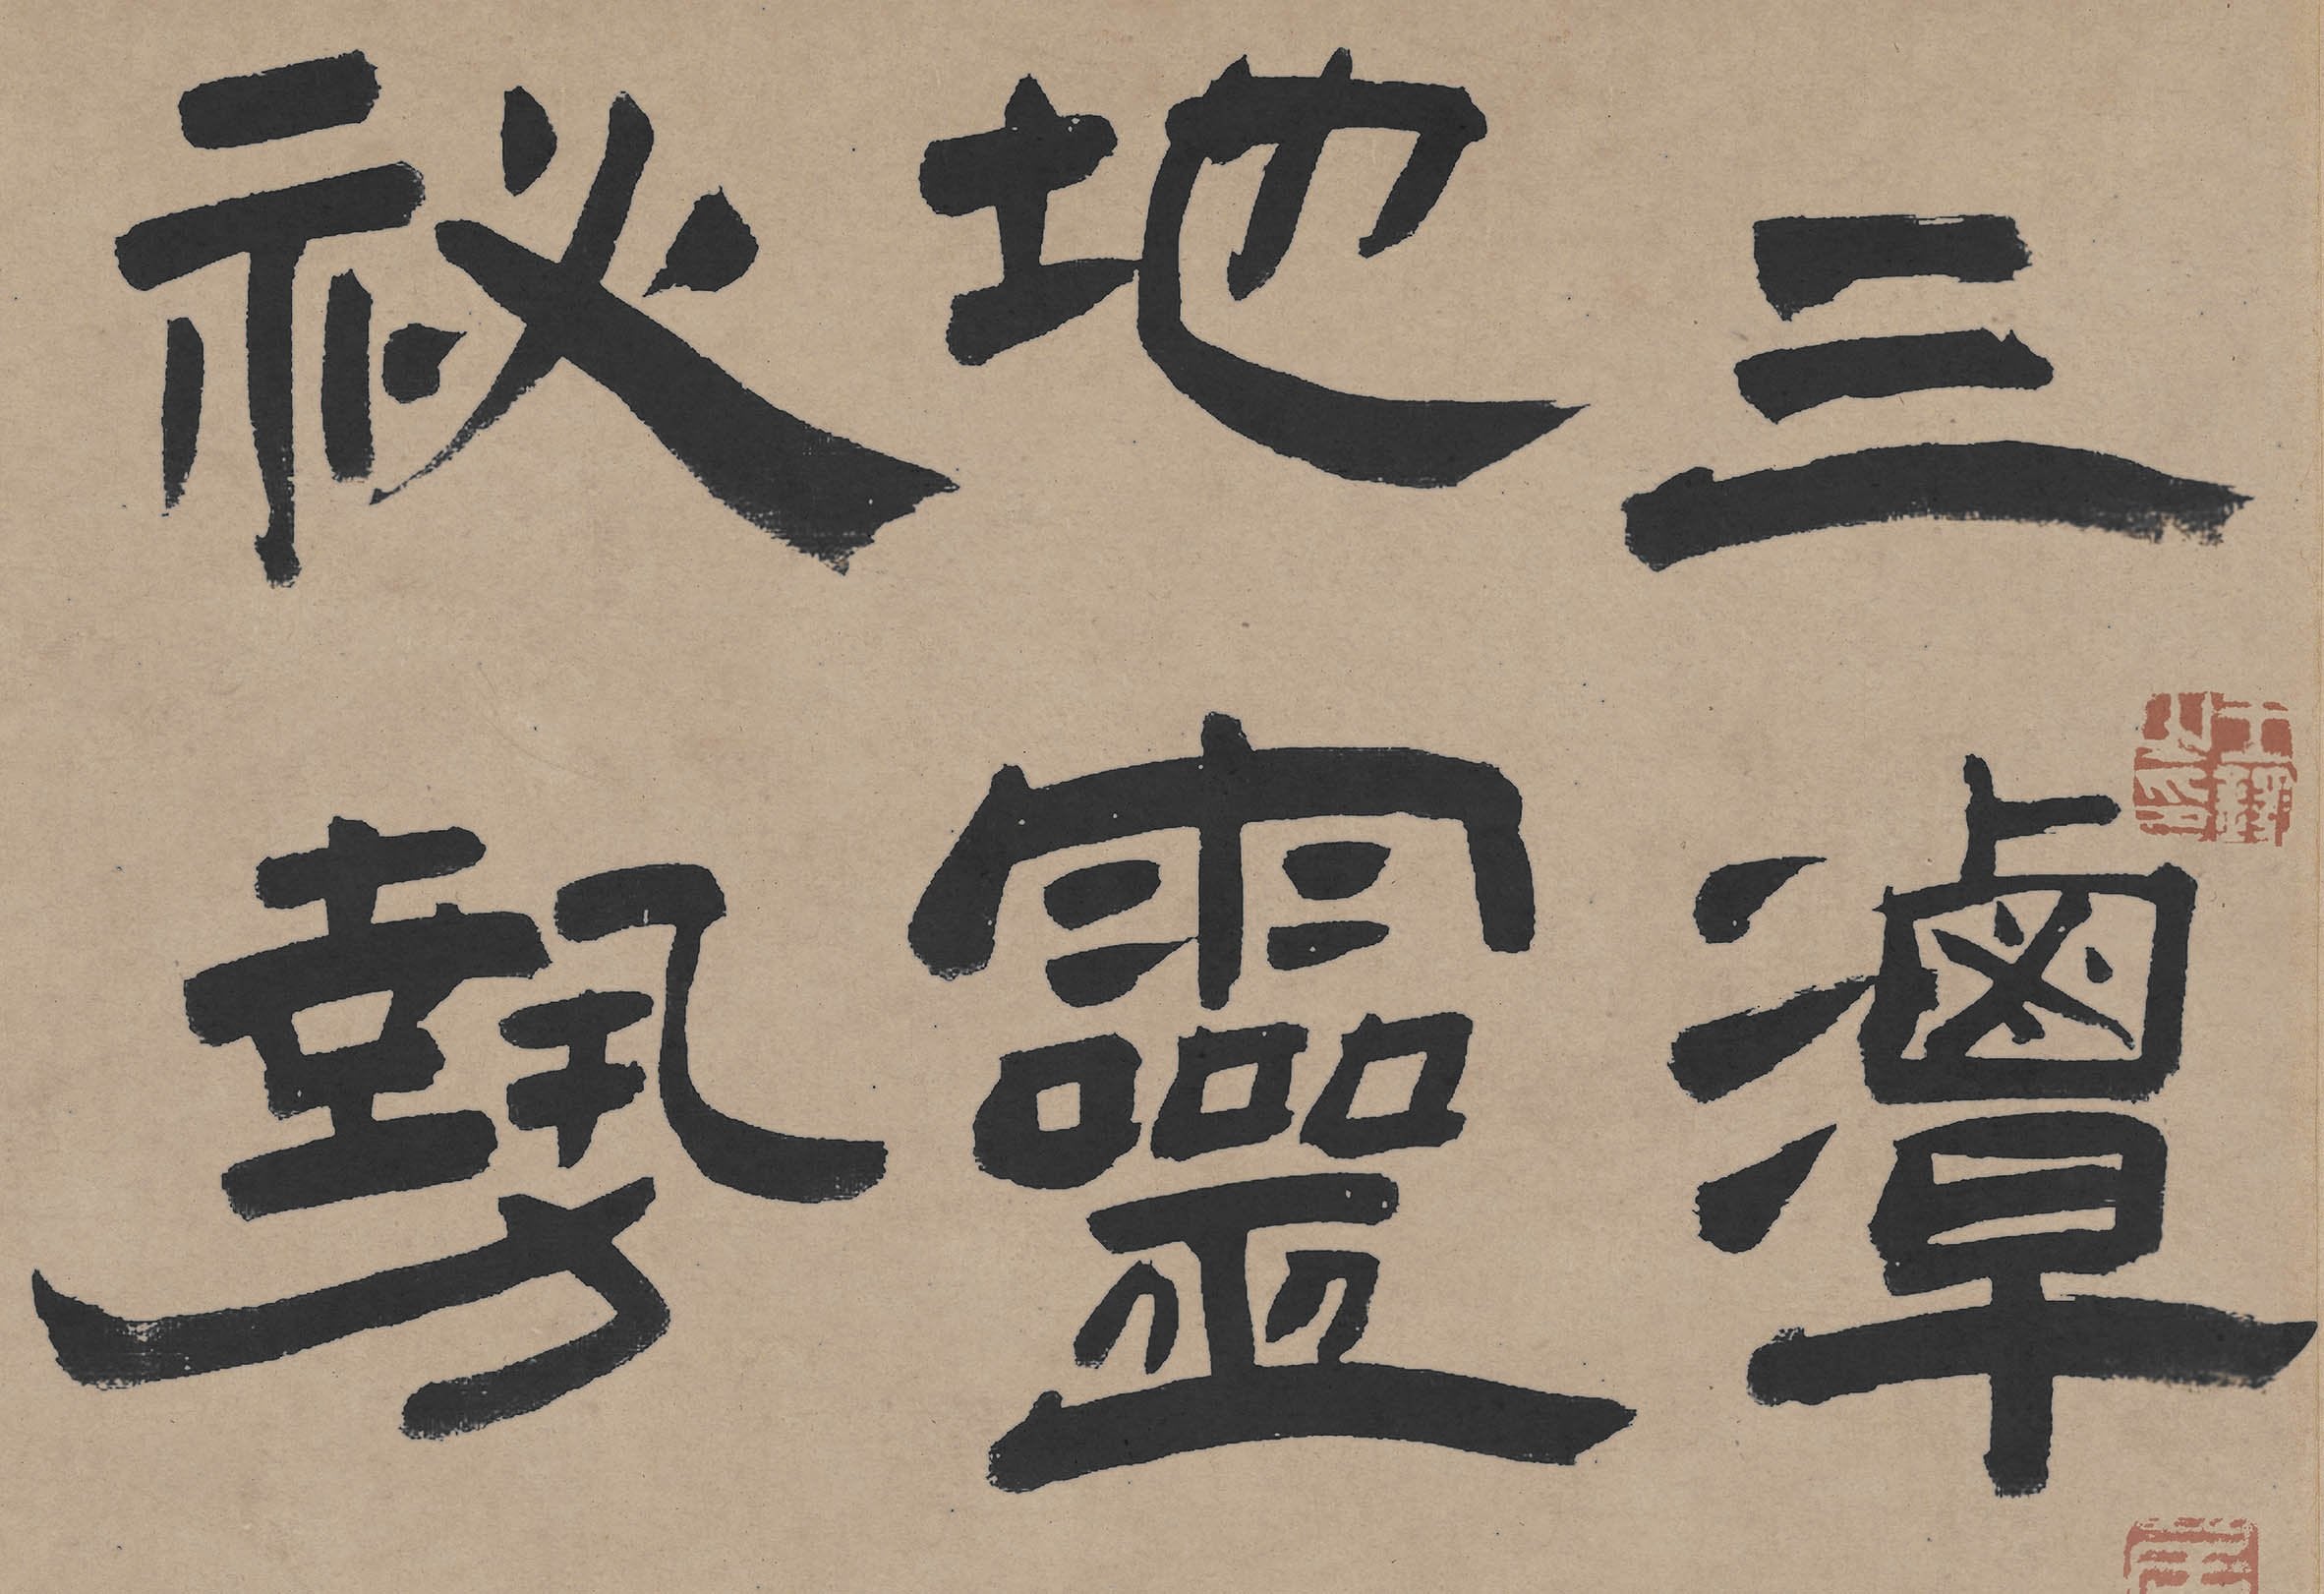 三潭
地靈
祕埶